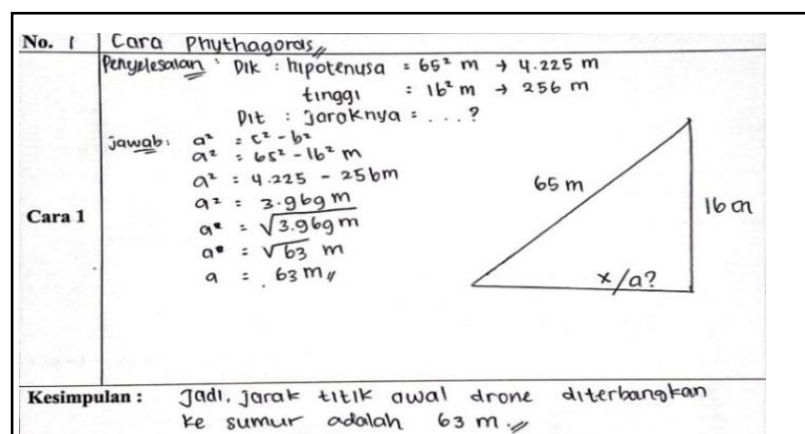 No. 1 Cara Phythagoras,,
Penyelesaian : Dik : hipotenusa = 65² m → 4.225 m
tinggi : 16² m → 256 m
Dit : jaraknya = . . . ?
jawab : a² = c² - b²
a² = 65² - 16² m
a² = 4.225 - 256m
a² = 3.969 m
a = √3.969 m
a = √63 m
a = 63 m,,
Cara 1
65 m
16 m
x/a?
Kesimpulan : Jadi, jarak titik awal drone diterbangkan
ke sumur adalah 63 m.,,